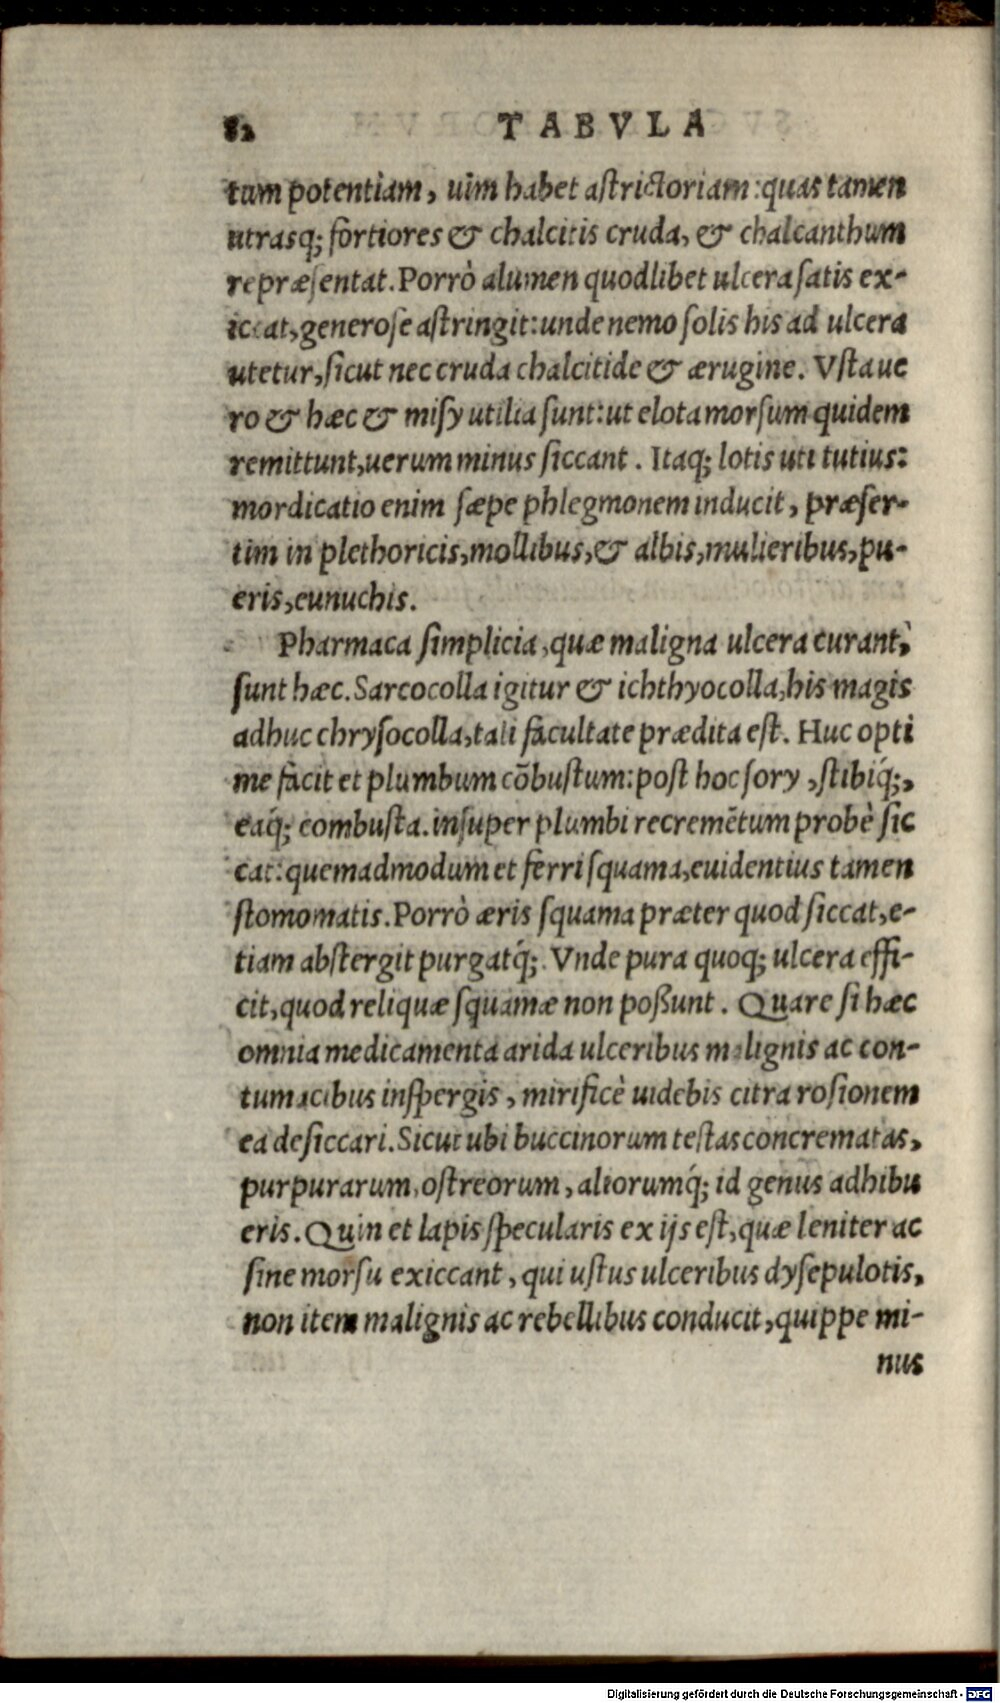 82 TABVLA
tum potentiam, uim habet aſtrictoriam: quas tamen
utrasq; fortiores & chalcitis cruda, & chalcanthum
repræſentat. Porrò alumen quodlibet ulcera ſatis ex-
iccat, generoſe aſtringit: unde nemo ſolis his ad ulcera
utetur, ſicut nec cruda chalcitide & ærugine. Vſta ue
ro & hæc & miſy utilia ſunt: ut elota morſum quidem
remittunt, uerum minus ſiccant. Itaq; lotis uti tutius:
mordicatio enim ſæpe phlegmonem inducit, præſer-
tim in plethoricis, mollibus, & albis, mulieribus, pu-
eris, eunuchis.
Pharmaca ſimplicia, quæ maligna ulcera curant,
ſunt hæc. Sarcocolla igitur & ichthyocolla, his magis
adhuc chryſocolla, tali facultate prædita eſt. Huc opti
me facit et plumbum cōbuſtum: poſt hoc ſory, ſtibiq́;,
eaq́; combuſta. inſuper plumbi recremētum probè ſic
cat: quemadmodum et ferri ſquama, euidentius tamen
ſtomomatis. Porrò æris ſquama præter quod ſiccat, e-
tiam abſtergit purgatq́;. Vnde pura quoq; ulcera effi-
cit, quod reliquæ ſquamæ non poßunt. Quare ſi hæc
omnia medicamenta arida ulceribus malignis ac con-
tumacibus inſpergis, mirificè uidebis citra roſionem
ea deſiccari. Sicut ubi buccinorum teſtas concrematas,
purpurarum, oſtreorum, aliorumq́; id genus adhibu
eris. Quin et lapis ſpecularis ex ijs eſt, quæ leniter ac
ſine morſu exiccant, qui uſtus ulceribus dyſepulotis,
non item malignis ac rebellibus conducit, quippe mi-
nus
Digitalisierung gefördert durch die Deutsche Forschungsgemeinschaft - DFG